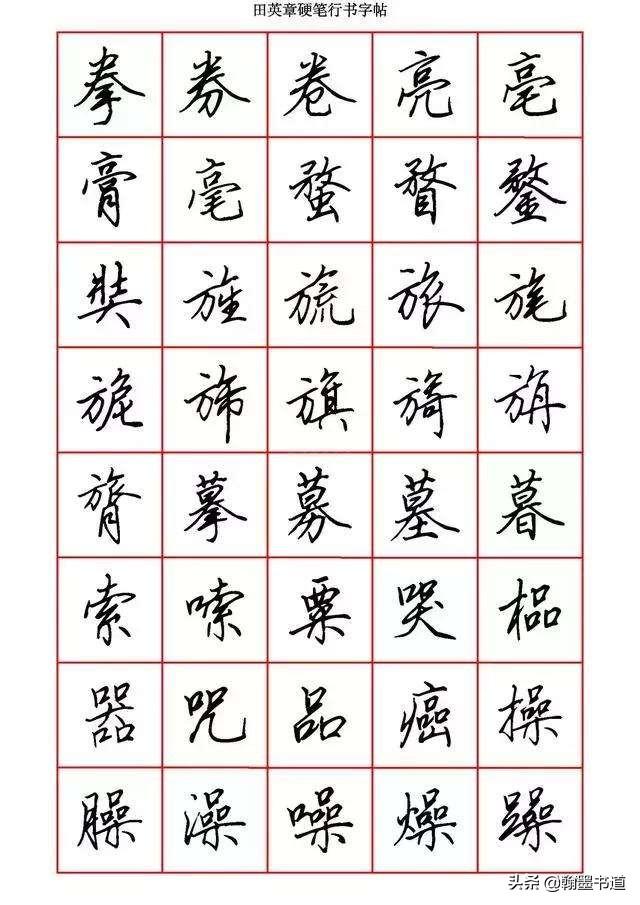 田英章硬笔行书字帖
拳 券 卷 亮 亳
膏 毫 蝥 瞀 鍪
奘 旌 旒 旅 旄
旎 旆 旗 旖 旃
膂 摹 募 墓 暮
索 嗦 粟 哭 榀
器 咒 品 癌 操
臊 澡 噪 燥 躁
头条 @翰墨书道